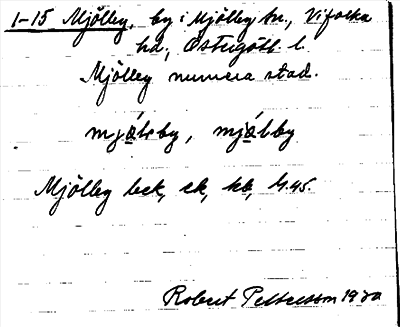 1-15 Mjölby, by i Mjölby sn., Vifolka
hd., Östergötl. l.
Mjölby numera stad.
mjölby, mjölby
Mjölby bck, ek, kb,
Robert Pettersson 1920